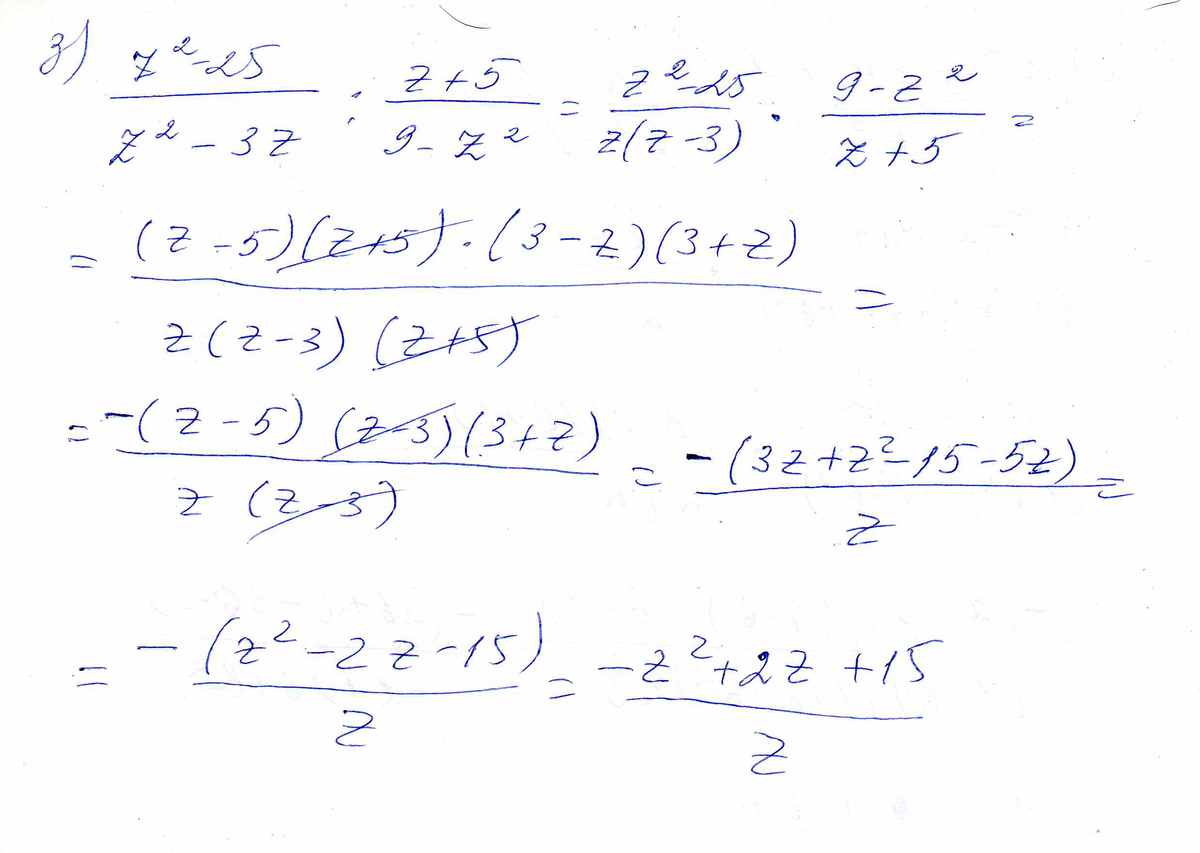 з) (z² - 25)/(z² - 3z) : (z + 5)/(9 - z²) = (z² - 25)/(z(z - 3)) · (9 - z²)/(z + 5) =
= ((z - 5)(z + 5) · (3 - z)(3 + z))/(z(z - 3)(z + 5)) =
= (-(z - 5)(z - 3)(3 + z))/(z(z - 3)) = (-(3z + z² - 15 - 5z))/z =
= (-(z² - 2z - 15))/z = (-z² + 2z + 15)/z